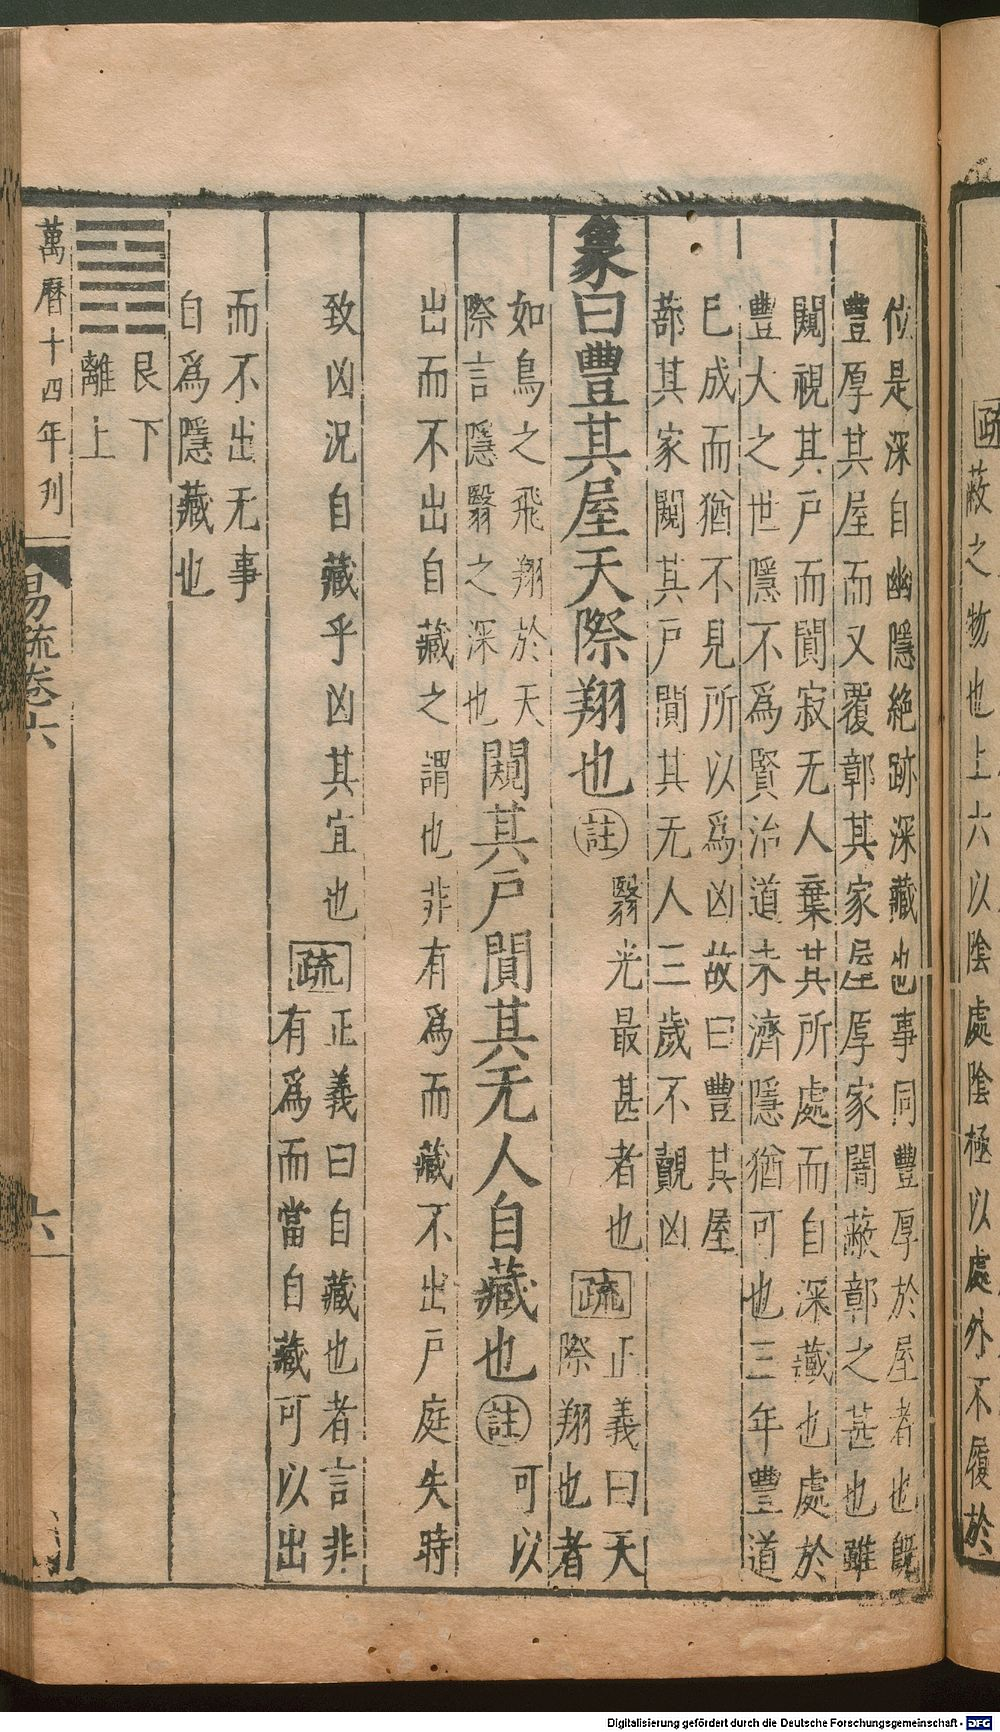 疏
蔽之物也上六以陰處陰極以處外不履於
位是深自幽隱絶跡深藏也事同豐厚於屋者也旣
豐厚其屋而又覆鄣其家屋厚家闇蔽鄣之甚也雖
闚視其戶而闃寂无人棄其所處而自深藏也處於
豐大之世隱不爲賢治道未濟隱猶可也三年豐道
已成而猶不見所以爲凶故曰豐其屋
蔀其家闚其戶闃其无人三歲不覿凶
象曰豐其屋天際翔也註翳光最甚者也疏正義曰天
際翔也者
如鳥之飛翔於天
際言隱翳之深也闚其戶闃其无人自藏也註可以
出而不出自藏之謂也非有爲而藏不出戶庭失時
致凶況自藏乎凶其宜也疏正義曰自藏也者言非
有爲而當自藏可以出
而不出无事
自爲隱藏也
艮下
離上
萬曆十四年刋 易疏卷六 六
Digitalisierung gefördert durch die Deutsche Forschungsgemeinschaft - DFG